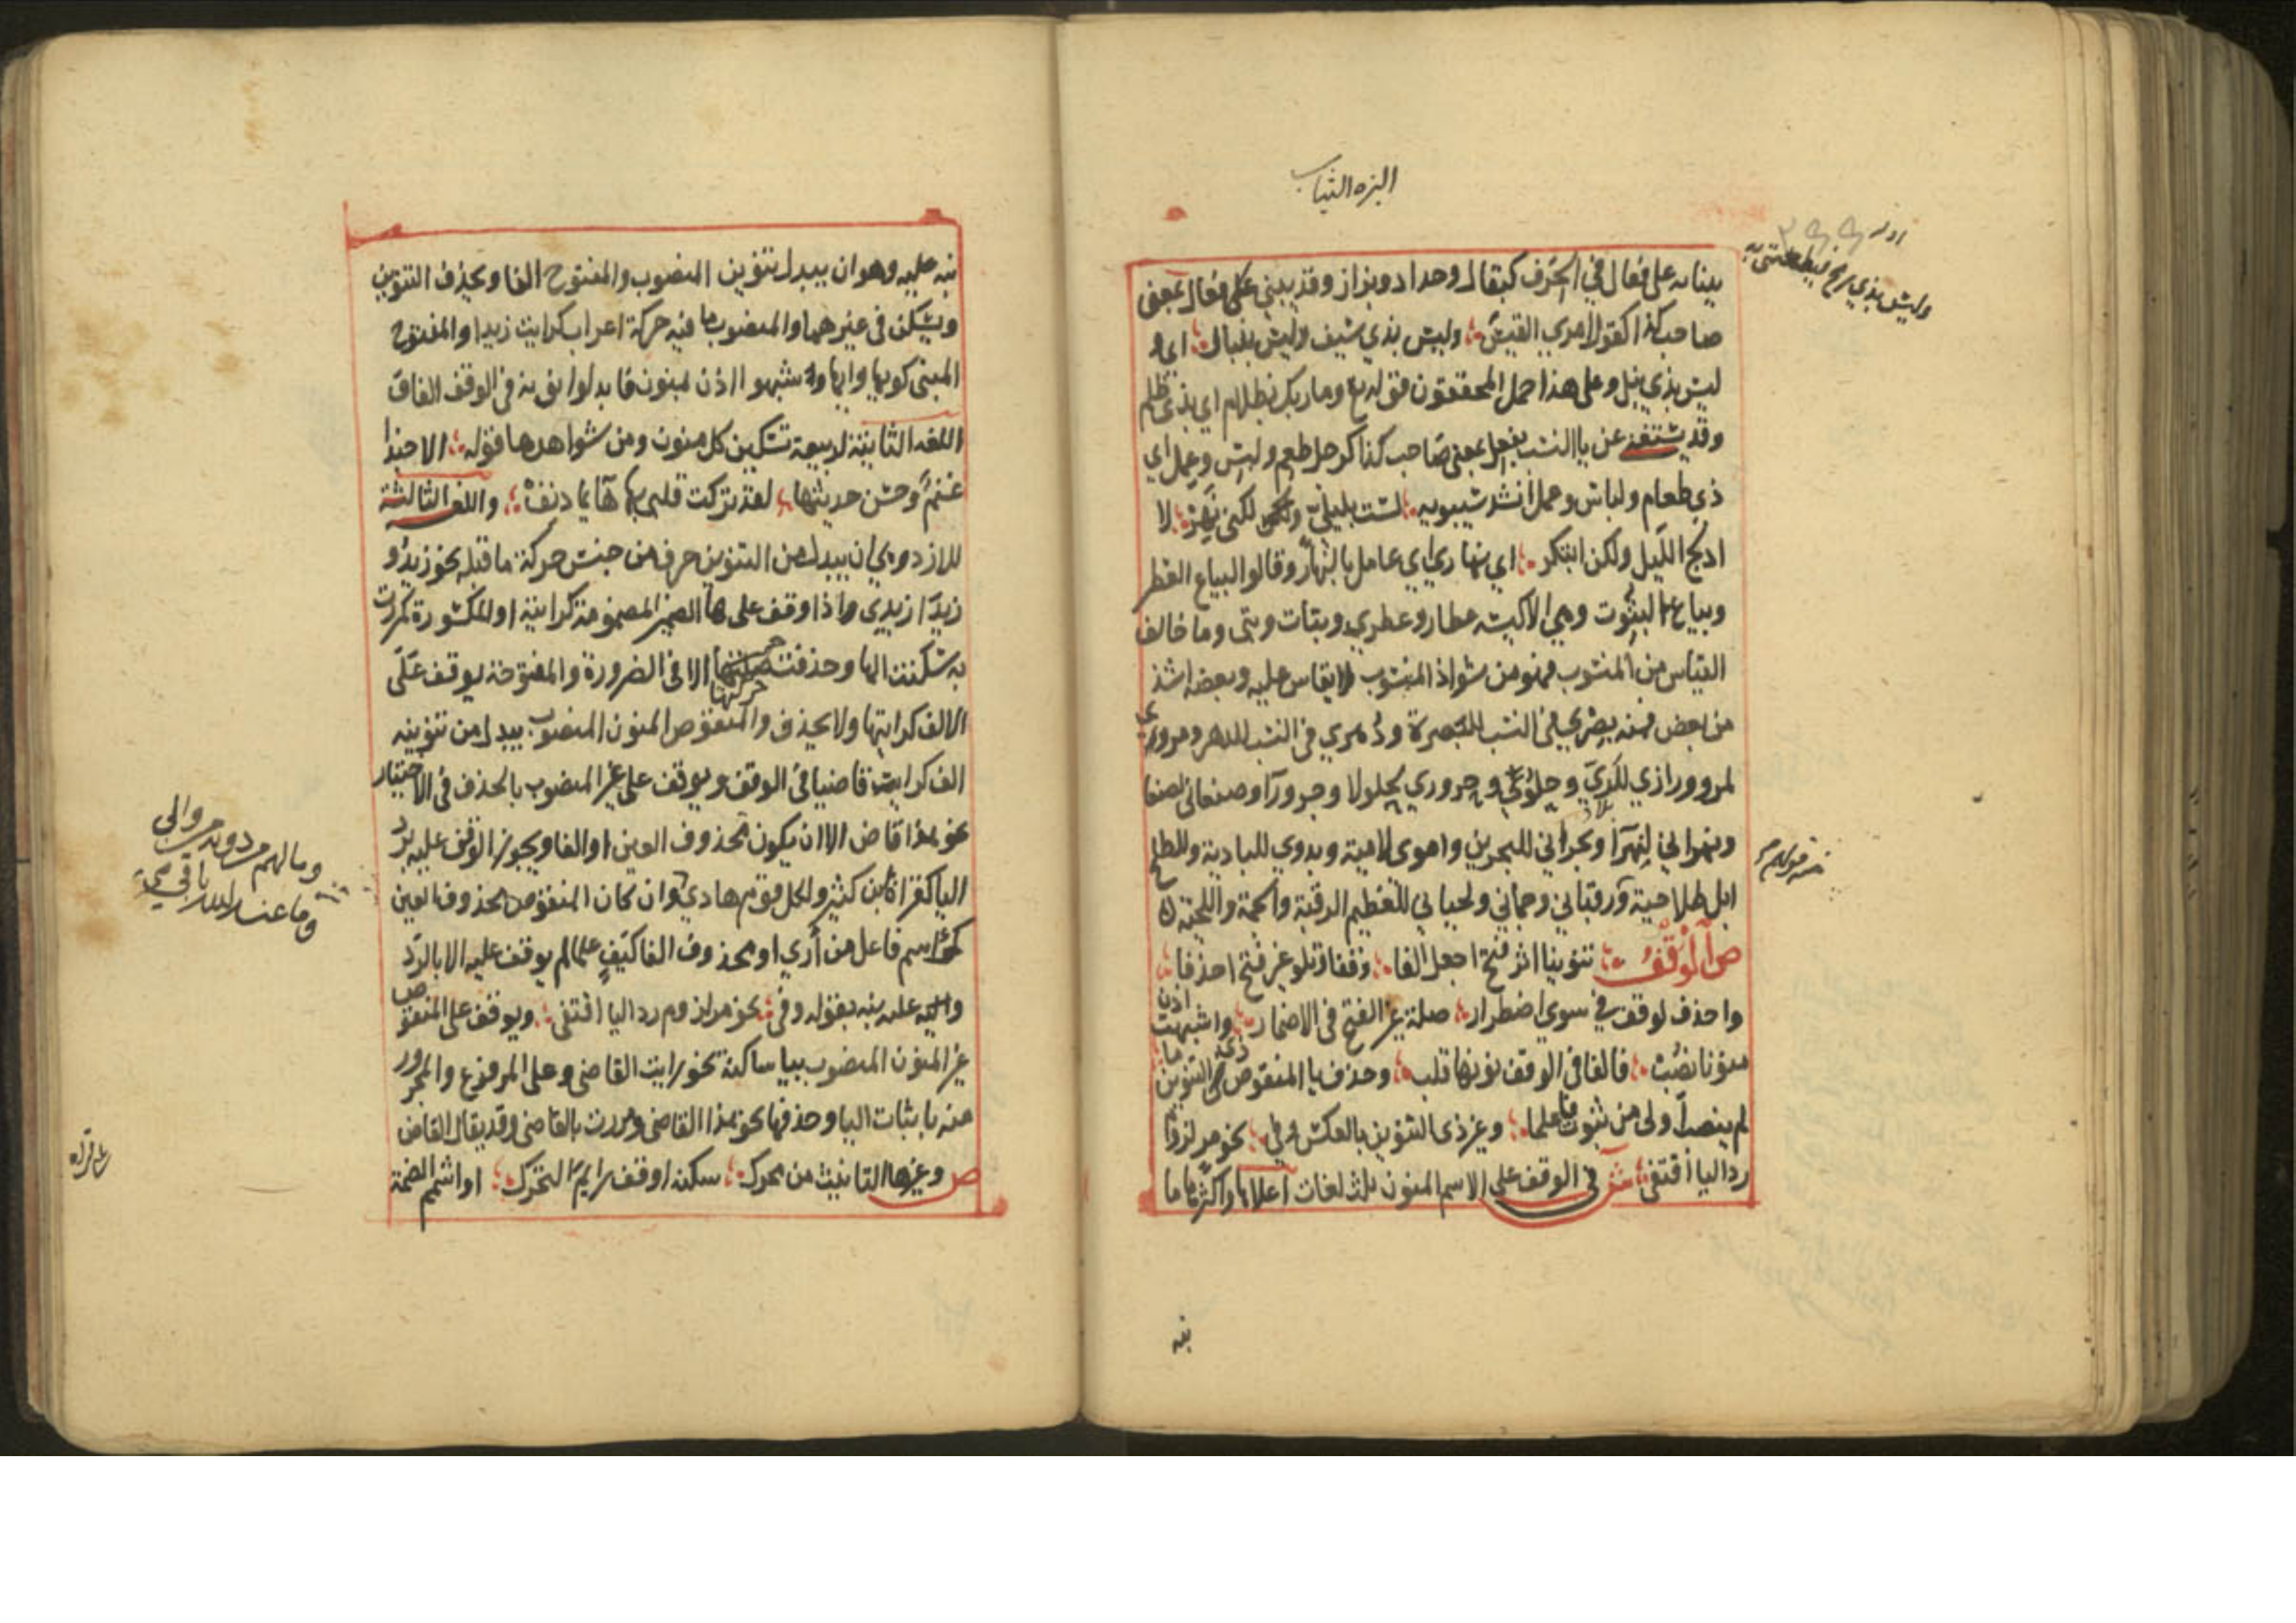 البزه الثياب
اوله
وليس بذي رمح فيطعنني به
ببنائه على فعال في الحرف كبقال وحداد وبزاز وقد يبنى على فعال بمعنى
صاحب كذا كقول امري القيس وليس بذي سيف وليس بنبال اي و
ليس بذي نبل وعلى هذا حمل المحققون قوله تع وما ربك بظلام اي بذي ظلم
وقد يستغنى عن يا النسب بفعل بمعنى صاحب كذا كرجل طعم ولبس وعمل اي
ذي طعام ولباس وعمل انشد سيبويه لست بليلي ولكني نهر لا
ادلج الليل ولكن ابتكر اي نهاري اي عامل بالنهار وقالوا لبياع العطر
وبياع البتوت وهي الاكسية عطار وعطري وبتات وبتي وما خالف
القياس من المنسوب فهو من شواذ المنسوب لا يقاس عليه وبعضه اشذ
من بعض فمنه بصري في النسب للبصرة ودهري في النسب للدهر ومروزي
لمرو ورازي للري وجلولي وحروري لجلولا وحرورآ وصنعاني لصنعا
وبهراني لبهرآ وبحراني للبحرين واموي لامية وبدوي للبادية وللطلح
ابل طلاحية ورقباني وجماني ولحياني للعظيم الرقبة والجمة واللحية
ص الوقف تنوينا اثر فتح اجعل الفا وقفا وتلو غير فتح احذفا
واحذف لوقف في سوى اضطرار صلة غير الفتح في الاضمار واشبهت اذن
منونا نصب فالفا في الوقف نونها قلب وحذف يا المنقوص ذي التنوين ما
لم ينصب اولى من ثبوت فاعلما وغير ذي التنوين بالعكس وفي نحو مر لزوم
رد اليا اقتفي ش في الوقف على الاسم المنون ثلث لغات اعلاها واكثرها ما
نبه
نبه عليه وهو ان يبدل تنوين المنصوب والمفتوح الفا ويحذف التنوين
ويسكن في غيرهما والمنصوب ما فيه حركة اعراب كرايت زيدا والمفتوح
المبني كويها وايها وشبهوا اذن بمنون فابدلوا نونه في الوقف الفا
اللغه الثانية لربيعة تسكين كل منون ومن شواهدها قوله الا حبذا
غنم وحسن حديثها لقد تركت قلبي بها هائما دنف واللغه الثالثة
للازد وهي ان يبدل من التنوين حرف من جنس حركة ما قبله نحو زيدو
زيدا زيدي واذا وقف على ها الضمير المضمومة كرايته او المكسورة كمررت
به سكنت الها وحذفت صلتها الا في الضرورة والمفتوحة يوقف على
حركتها
الالف كرايتها ولا يحذف والمنقوص المنون المنصوب يبدل من تنوينه
الف كرايت قاضيا في الوقف ويوقف على غير المنصوب بالحذف في الاختيار
نحو هذا قاض الا ان يكون محذوف العين او الفا ويجوز الوقف عليه برد
اليا كقراة ابن كثير ولكل قوم هادي وان كان المنقوص محذوف العين
كمر اسم فاعل من أرى او محذوف الفا كيف علما لم يوقف عليه الا بالرد
واليه عليه نبه بقوله وفي نحو مر لزوم رد اليا اقتفي ويوقف على المنقوص
غير المنون المنصوب بيا ساكنة نحو رايت القاضي وعلى المرفوع والمجرور
منه باثبات اليا وحذفها نحو هذا القاضي ومررت بالقاضي وقد يقال القاض
ص وغيرها التانيث من محرك سكنه او قف رايم التحرك او اشمم الضمة
وما لهم من دونه من والي
وما عند الله باقي